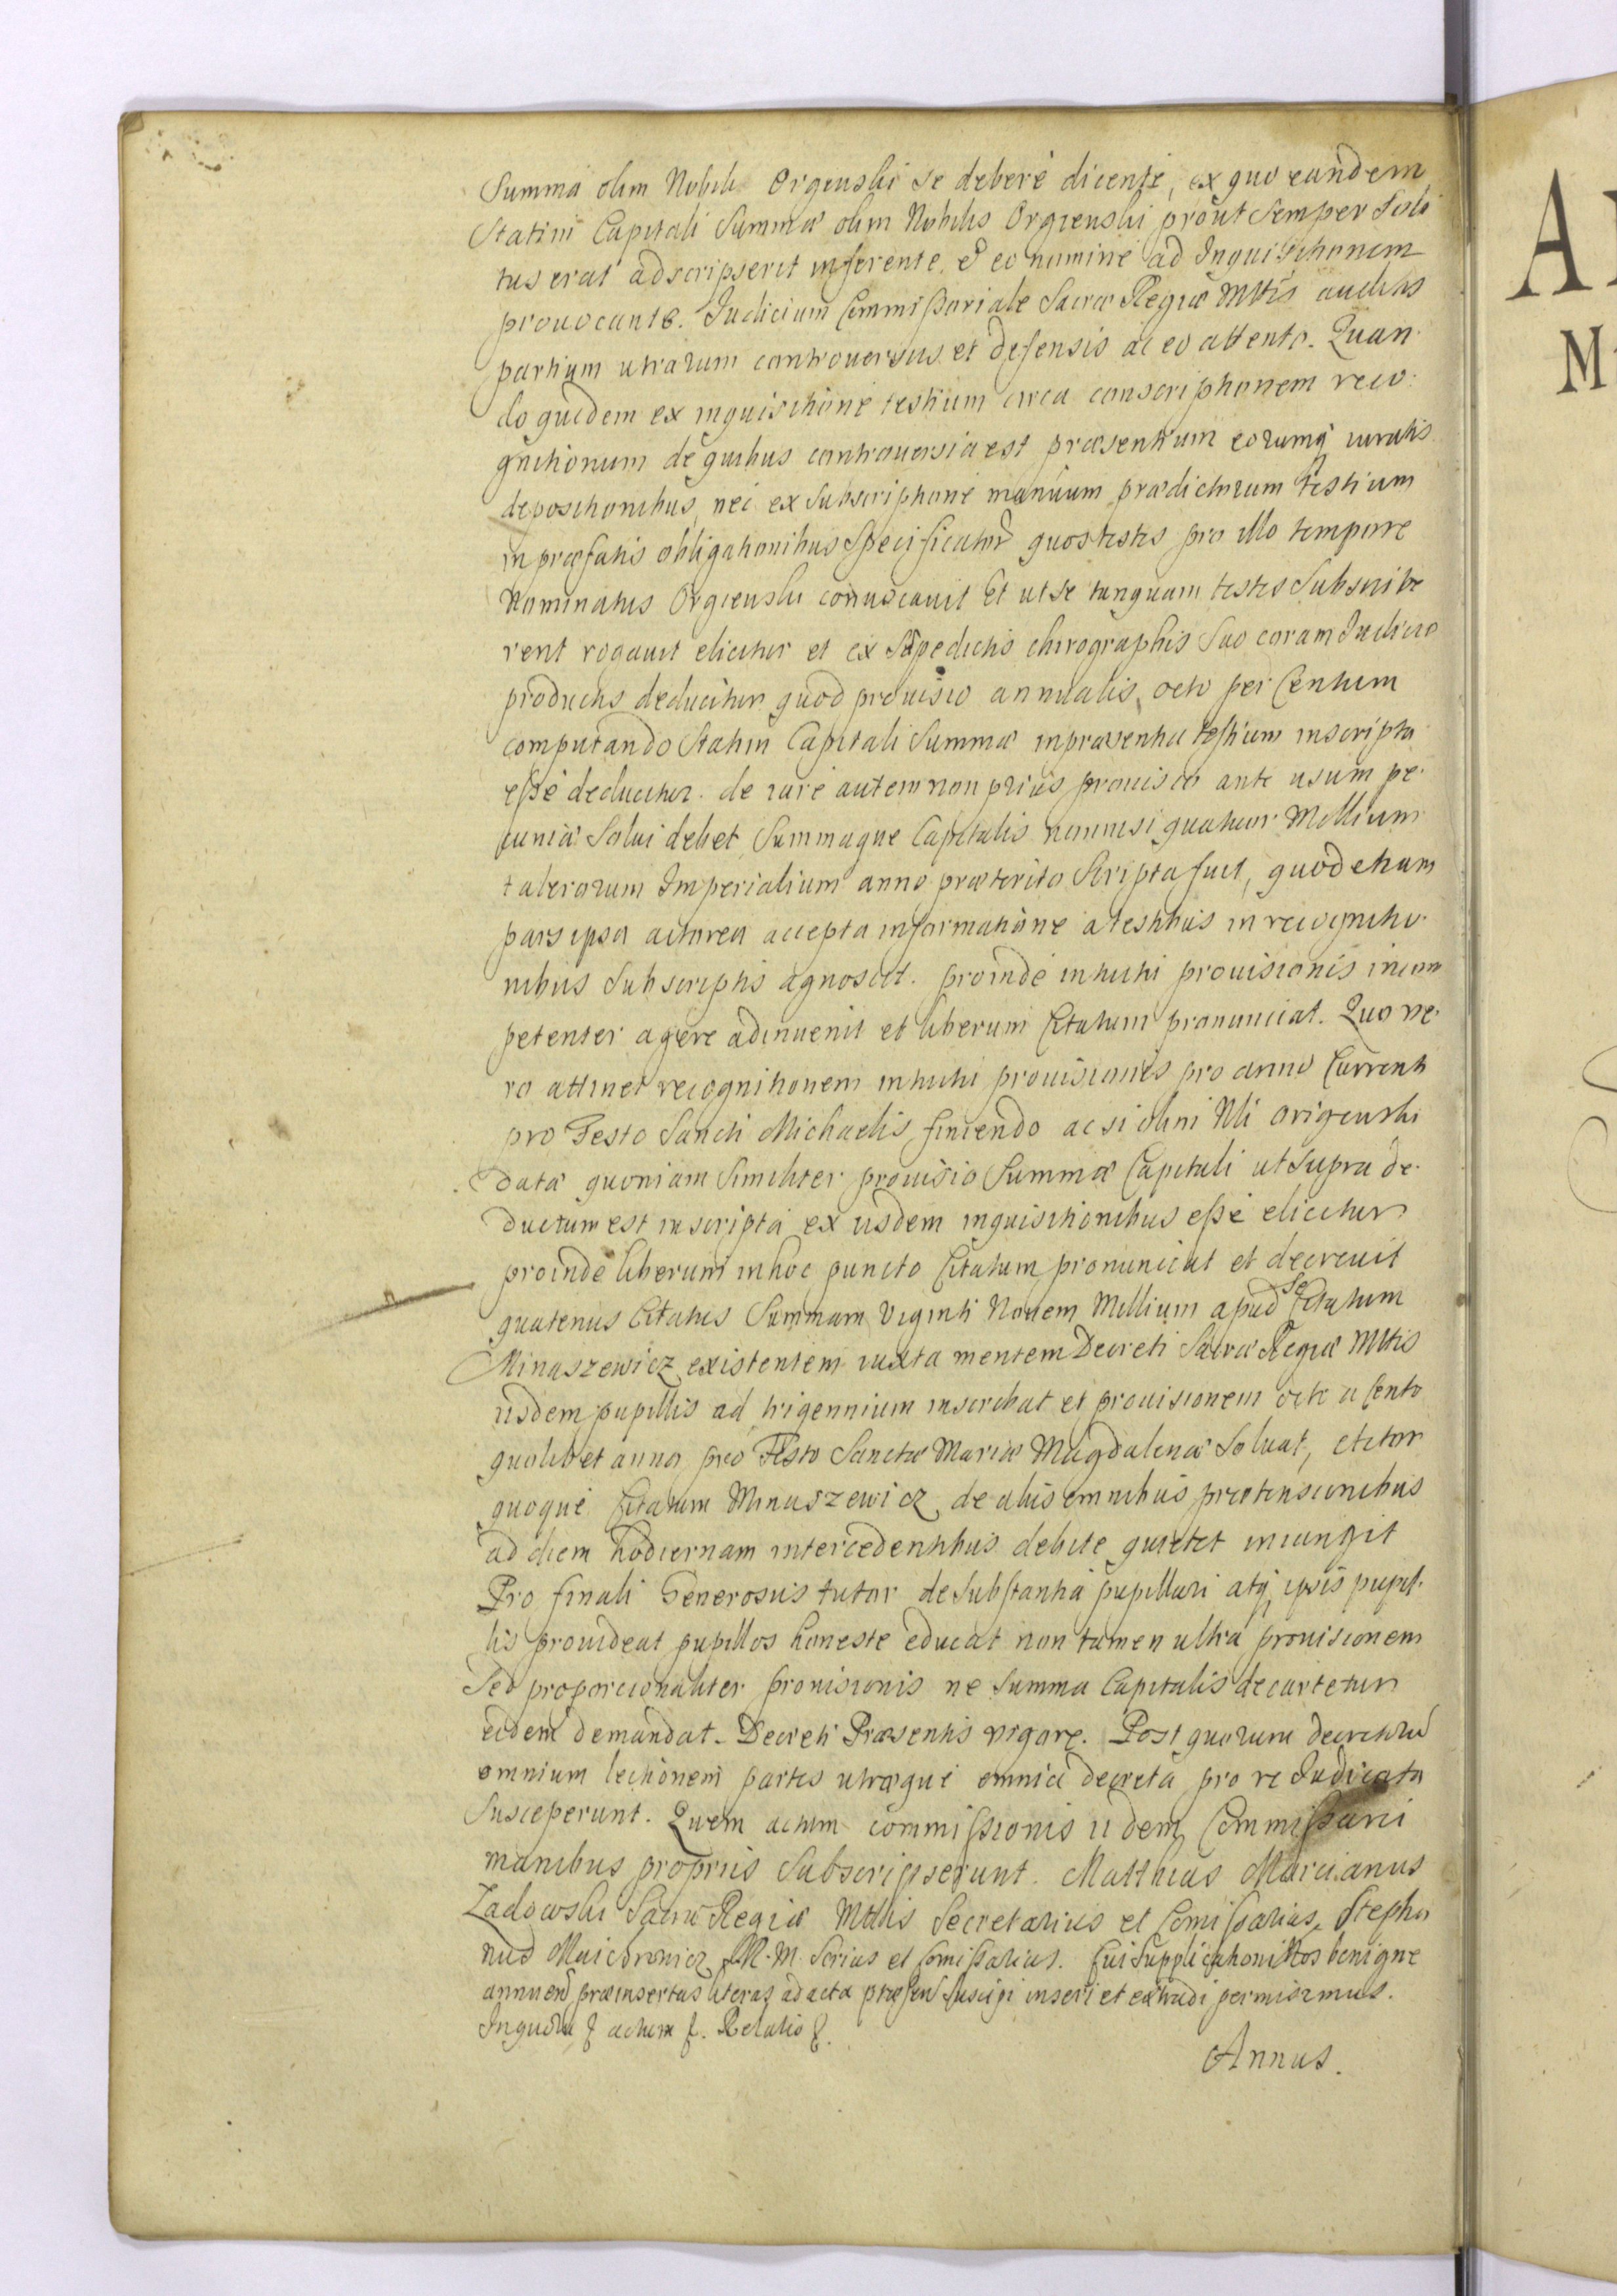 Summa olim Nobili Orgenski se debere dicente, ex quo eandem
Statim Capitali Summæ olim Nobilis Orgienski prout semper Soli
tus erat adscripserit inferente, & eo nomine ad Inquisitionem
prouocante. Judicium Commissoriale Sacræ Regiæ Mttis auditis
partium utrarum controuersus et defensis ac eo attento. Quan
do quidem ex inquisitione testium circa conscriptionem reco:
gnitionum de quibus controuersia est præsentium eorumq iuratis
depositionibus, nec ex Subscriptione manuum prædictorum testium
in præfatis obligationibus Specificator quos testes pro illo tempore
Nominatus Orgienski conuocauit Et ut se tanquam testes Subscribe
rent rogauit elicitur et ex Sæpedictis chirographis Suo coram Judicio
productis deducitur quod prouisio annualis, octo per Centum
computando Statim Capitali Summæ in præsentia testium inscripta
esse deducitur. de iure autem non prius prouisio ante usum pe:
cuniæ Solui debet, Summaque Capitalis nonnisi quatuor Millium
talerorum Imperialium anno præterito Scripta fuit, quod etiam
pars ipsa actorea accepta informatione a testibus in recognitio
nibus Subscriptis agnoscit. proinde intuitu prouisionis incom
petenter agere adinuenit et liberum Citatum pronunciat. Quo ve:
ro attinet recognitionem intuitu prouisionis pro anno Current
pro Festo Sancti Michaelis finiendo ac si olim Nli Origenski
data quoniam Similiter prouisio Summæ Capitali ut Supra de:
ductum est inscripta ex iisdem inquisitionibus esse elicitur
proinde liberum in hoc puncto Citatum pronunciat et decreuit
quatenus Citatus Summam Viginti Nouem Millium apud se Citatum
Minaszewicz existentem iuxta mentem Decreti Sacræ Regiæ Mttis
iisdem pupillis ad trigennium inscribat et prouisionem octo a Cento
quolibet anno pro Festo Sanctæ Mariæ Magdalenæ Soluat,
quoque Citatum Minaszewicz de aliis omnibus prætensionibus
ad diem hodiernam intercedentibus debite quietet iniungit
Pro finali Generosus tutor de Substantia pupillari atq ipsis pupil:
lis prouideat pupillos honeste educat non tamen ultra prouisionem
Sed proporcionaliter prouisionis ne Summa Capitalis decurtetur
eidem demandat. Decreti Præsentis vigore. Post quorum decretorum
omnium lectionem partes utræque omnia decreta pro re Judicata
Susceperunt. Quem actum commissionis iidem Commissarii
manibus propriis Subscripserunt. Matthias Marcianus
Ladowski Sacræ Regiæ Mttis Secretarius et Comissarius, Stepha
nus Maicorowicz S.R.M. Scrius et Comissarius. Cui Supplicationi Nos benigne
annuen præinsertas literas ad acta præsen Suscipi inseri et extradi permisimus.
In quor & actum &. Relatio &.
Annus.
A
M